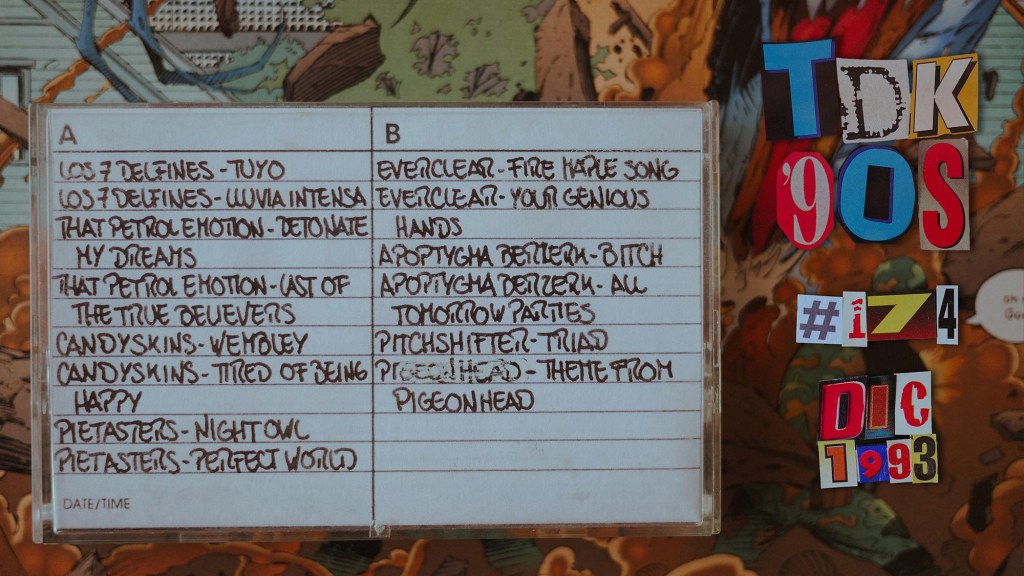 A
LOS 7 DELFINES - TUYO
LOS 7 DELFINES - LLUVIA INTENSA
THAT PETROL EMOTION - DETONATE
MY DREAMS
THAT PETROL EMOTION - LAST OF
THE TRUE BELIEVERS
CANDYSKINS - WEMBLEY
CANDYSKINS - TIRED OF BEING
HAPPY
PIETASTERS - NIGHT OWL
PIETASTERS - PERFECT WORLD
DATE/TIME
B
EVERCLEAR - FIRE MAPLE SONG
EVERCLEAR - YOUR GENIOUS
HANDS
APOPTYGMA BERZERK - BITCH
APOPTYGMA BERZERK - ALL
TOMORROW PARTIES
PITCHSHIFTER - TRIAD
PIGEONHEAD - THEME FROM
PIGEONHEAD
TDK
'90S
#174
DIC
1993